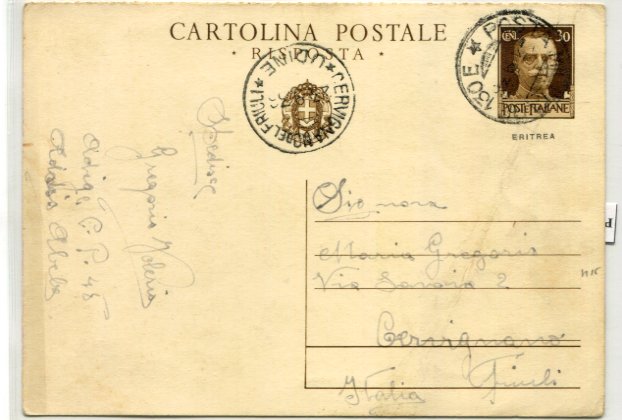 CARTOLINA POSTALE
★ RISPOSTA ★
CENT. 30
POSTE ITALIANE
ERITREA
POSTA
130 E ★
★ CERVIGNANO DEL FRIULI ★ UDINE
Spedisce
Gregoris Valeria
Adige C. P. 45
Addis Abeba
Signora
Maria Gregoris
Via Savoia 2
Cervignano
Friuli
Italia